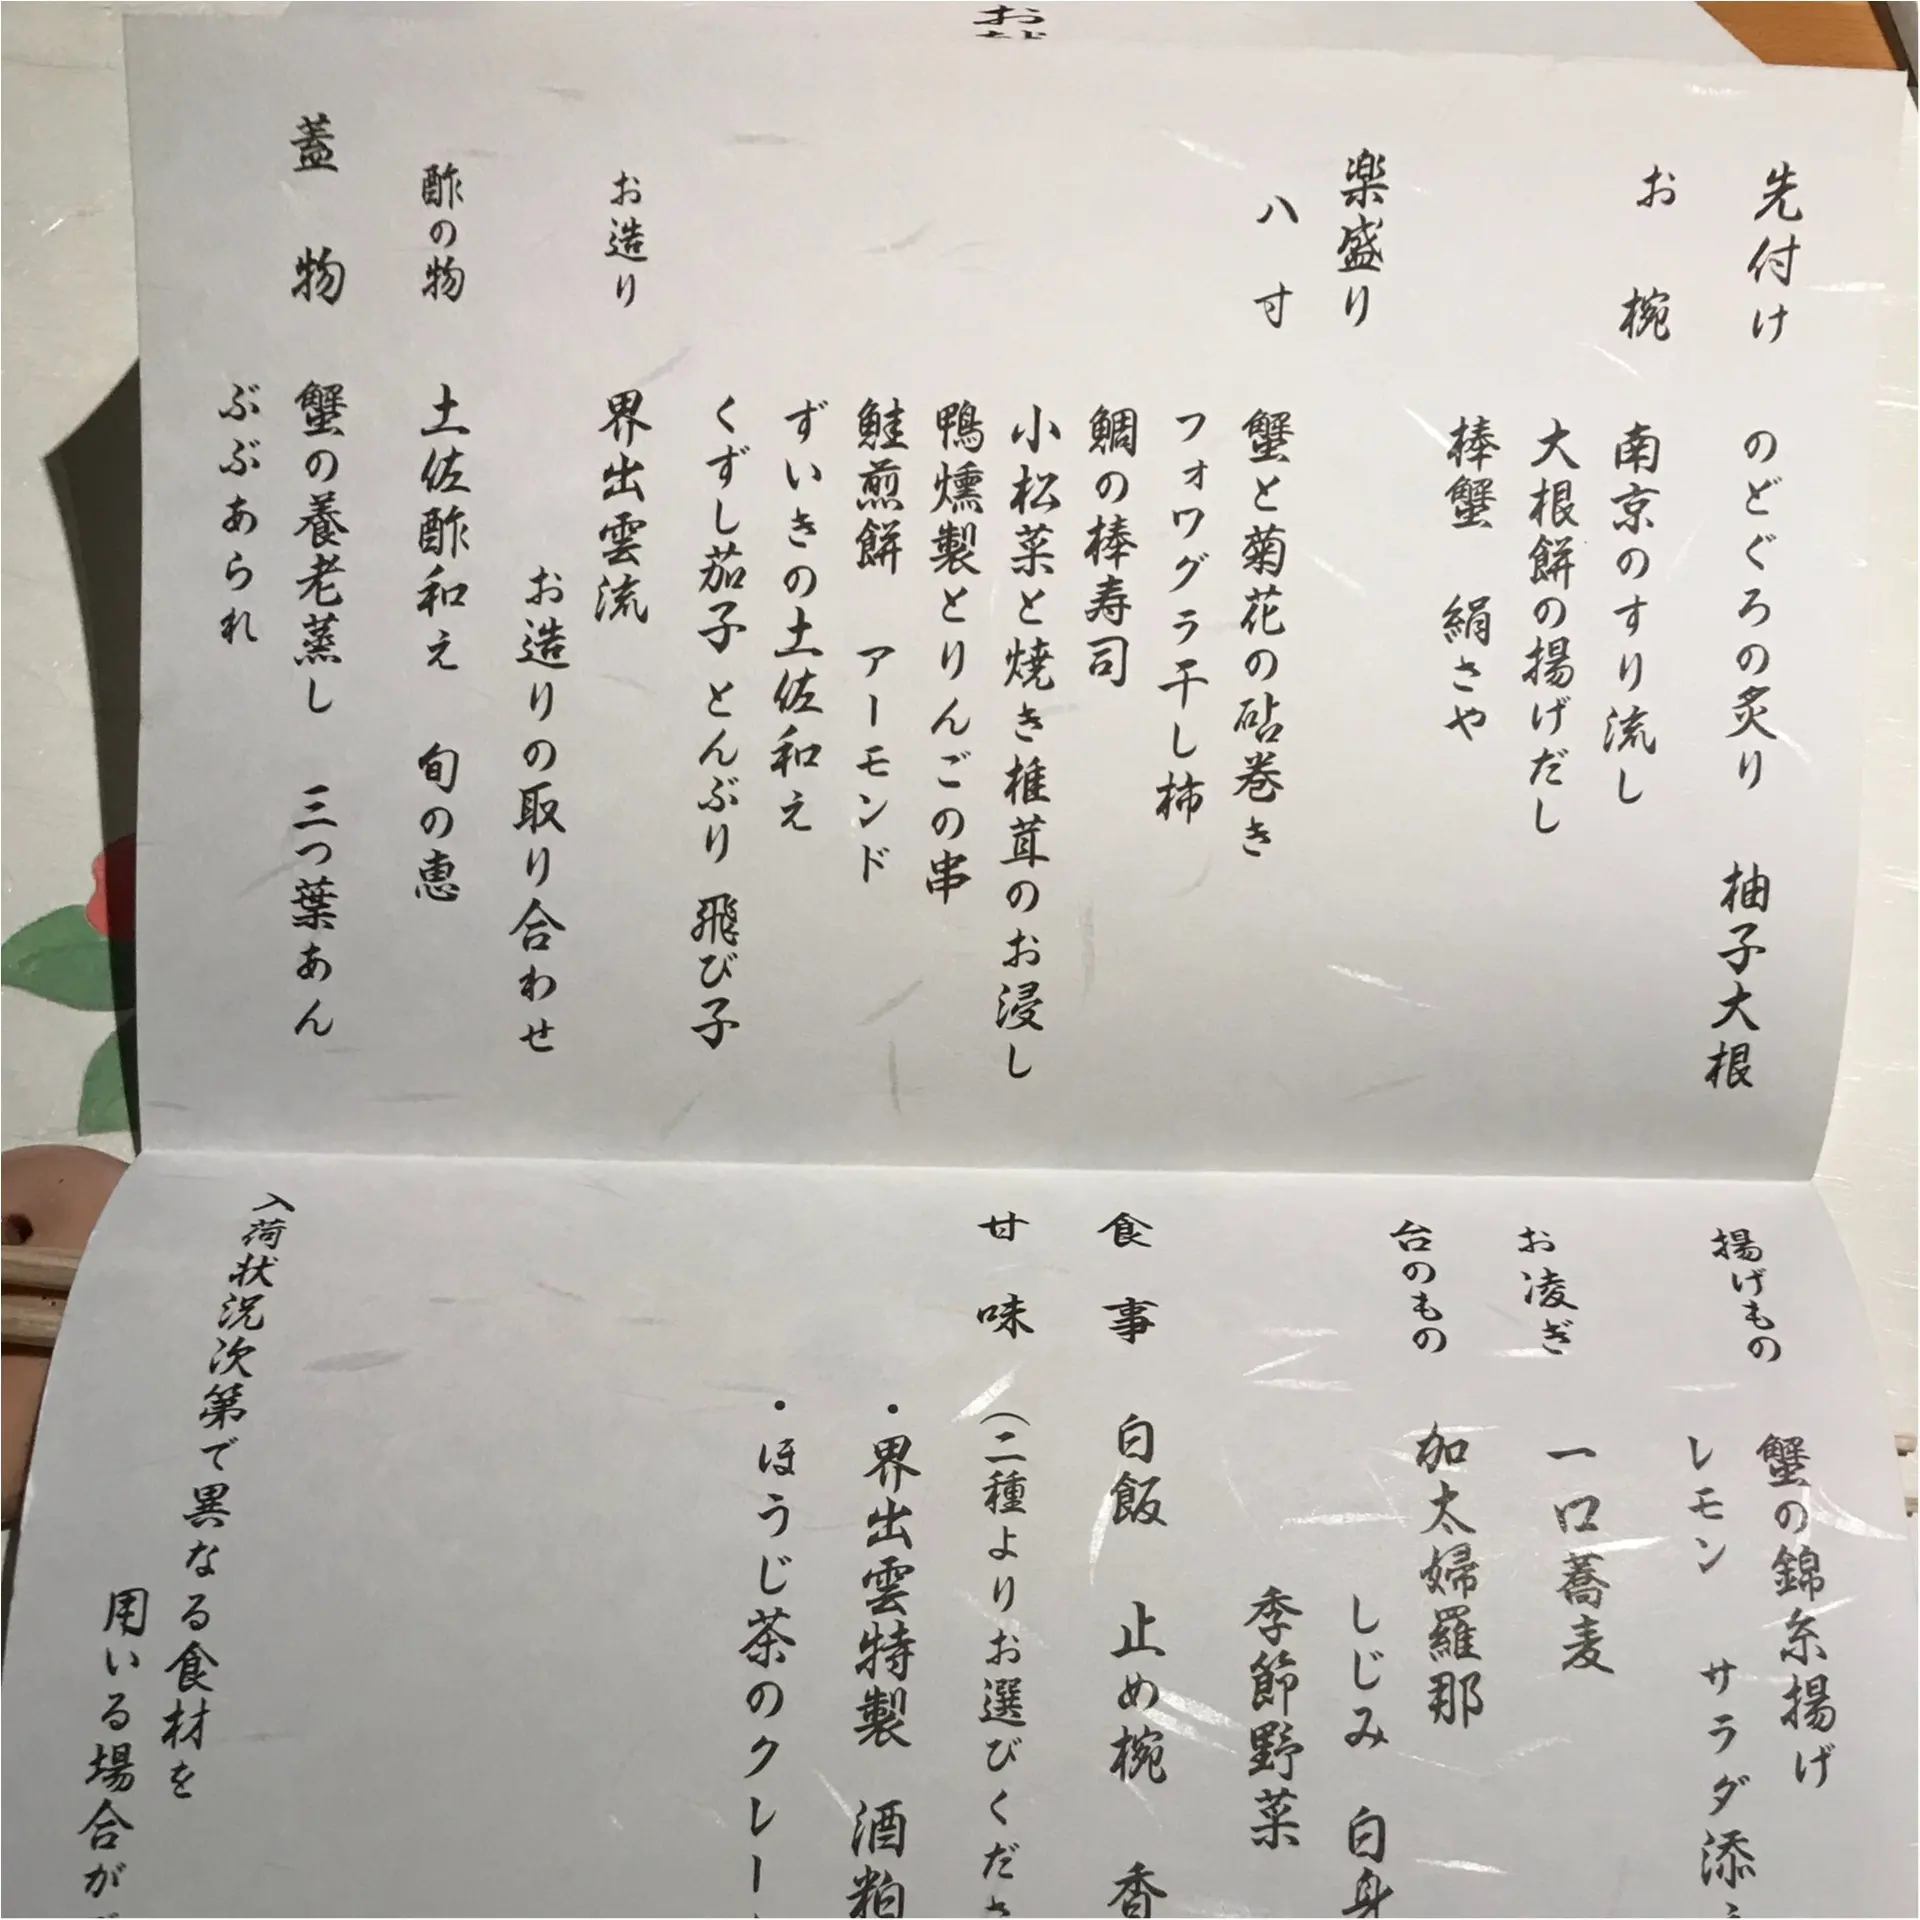 お
先付け　のどぐろの炙り　柚子大根
お椀　南京のすり流し
大根餅の揚げだし
棒蟹　絹さや
楽盛り
八寸　蟹と菊花の砧巻き
フォワグラ干し柿
鯛の棒寿司
小松菜と焼き椎茸のお浸し
鴨燻製とりんごの串
鮭煎餅　アーモンド
ずいきの土佐和え
くずし茄子　とんぶり　飛び子
お造り　界出雲流
お造りの取り合わせ
酢の物　土佐酢和え　旬の恵
蓋物　蟹の養老蒸し　三つ葉あん
ぶぶあられ
揚げもの　蟹の錦糸揚げ
レモン　サラダ添
お凌ぎ　一口蕎麦
台のもの　加太婦羅那
しじみ　白身
季節野菜
食事　白飯　止め椀　香
甘味　（二種よりお選びくださ
・界出雲特製　酒粕
・ほうじ茶のクレー
入荷状況次第で異なる食材を
用いる場合が